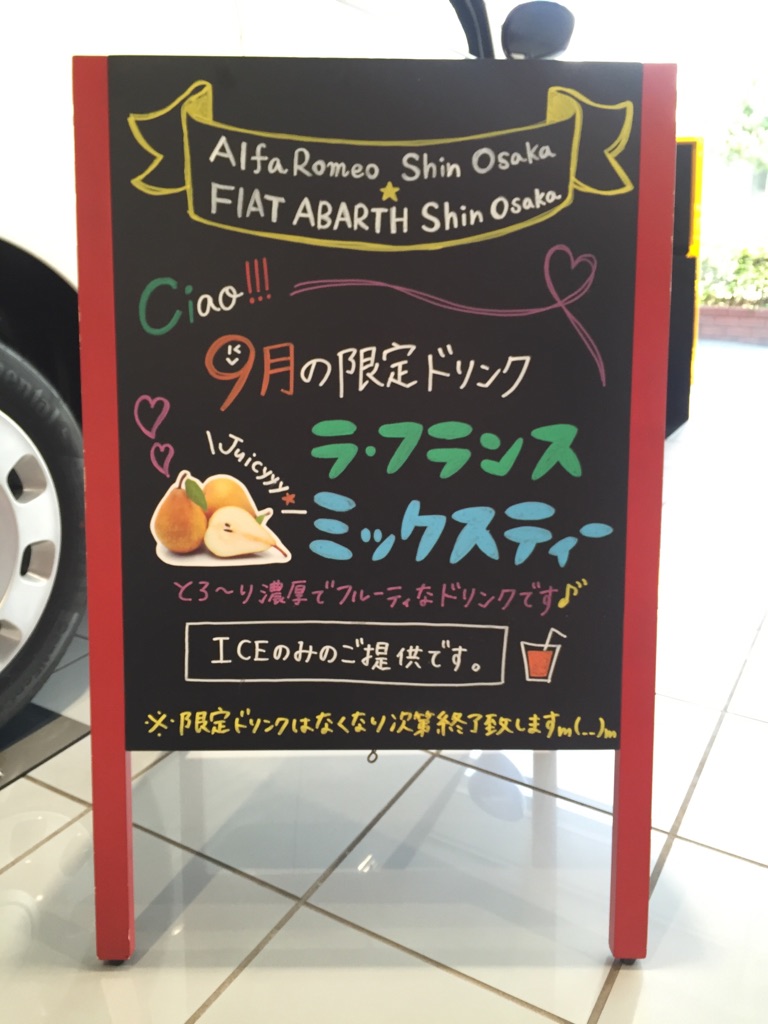 Alfa Romeo Shin Osaka
★
FIAT ABARTH Shin Osaka
Ciao!!!
9月の限定ドリンク
\Juicyyy★/
ラ・フランス
ミックスティー
とろ〜り濃厚でフルーティなドリンクです♪
ICEのみのご提供です。
※・限定ドリンクはなくなり次第終了致しますm(__)m